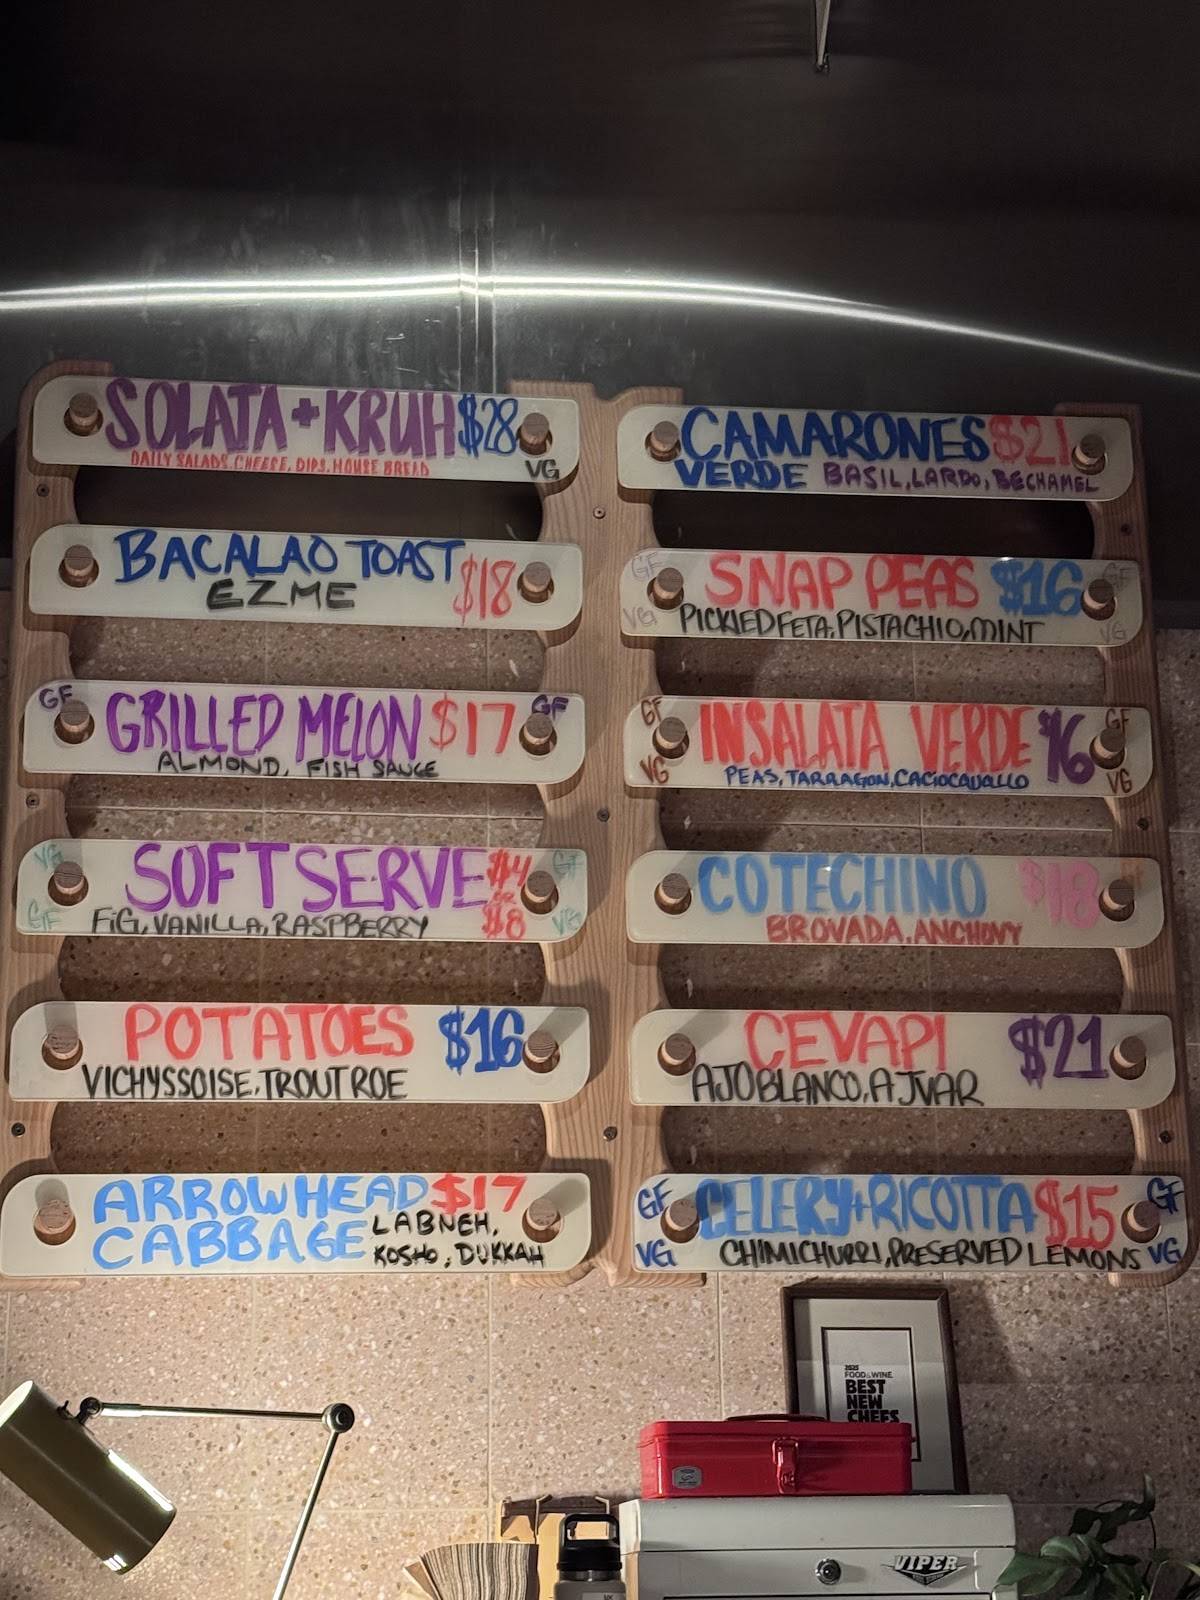 SOLATA + KRUH $28
DAILY SALADS, CHEESE, DIPS, HOUSE BREAD
VG
BACALAO TOAST
EZME $18
GF GRILLED MELON $17 GF
ALMOND, FISH SAUCE
VG SOFT SERVE $4 GF
or
GF FIG, VANILLA, RASPBERRY $8 VG
POTATOES $16
VICHYSSOISE, TROUT ROE
ARROWHEAD $17
CABBAGE LABNEH,
KOSHO, DUKKAH
CAMARONES $21
VERDE BASIL, LARDO, BECHAMEL
GF SNAP PEAS $16 GF
VG PICKLED FETA, PISTACHIO, MINT VG
GF INSALATA VERDE $16 GF
VG PEAS, TARRAGON, CACIOCAVALLO VG
COTECHINO $18
BROVADA, ANCHOVY
CEVAPI $21
AJO BLANCO, AJVAR
GF CELERY + RICOTTA $15 GF
VG CHIMICHURRI, PRESERVED LEMONS VG
2025
FOOD & WINE
BEST
NEW
CHEFS
VIPER